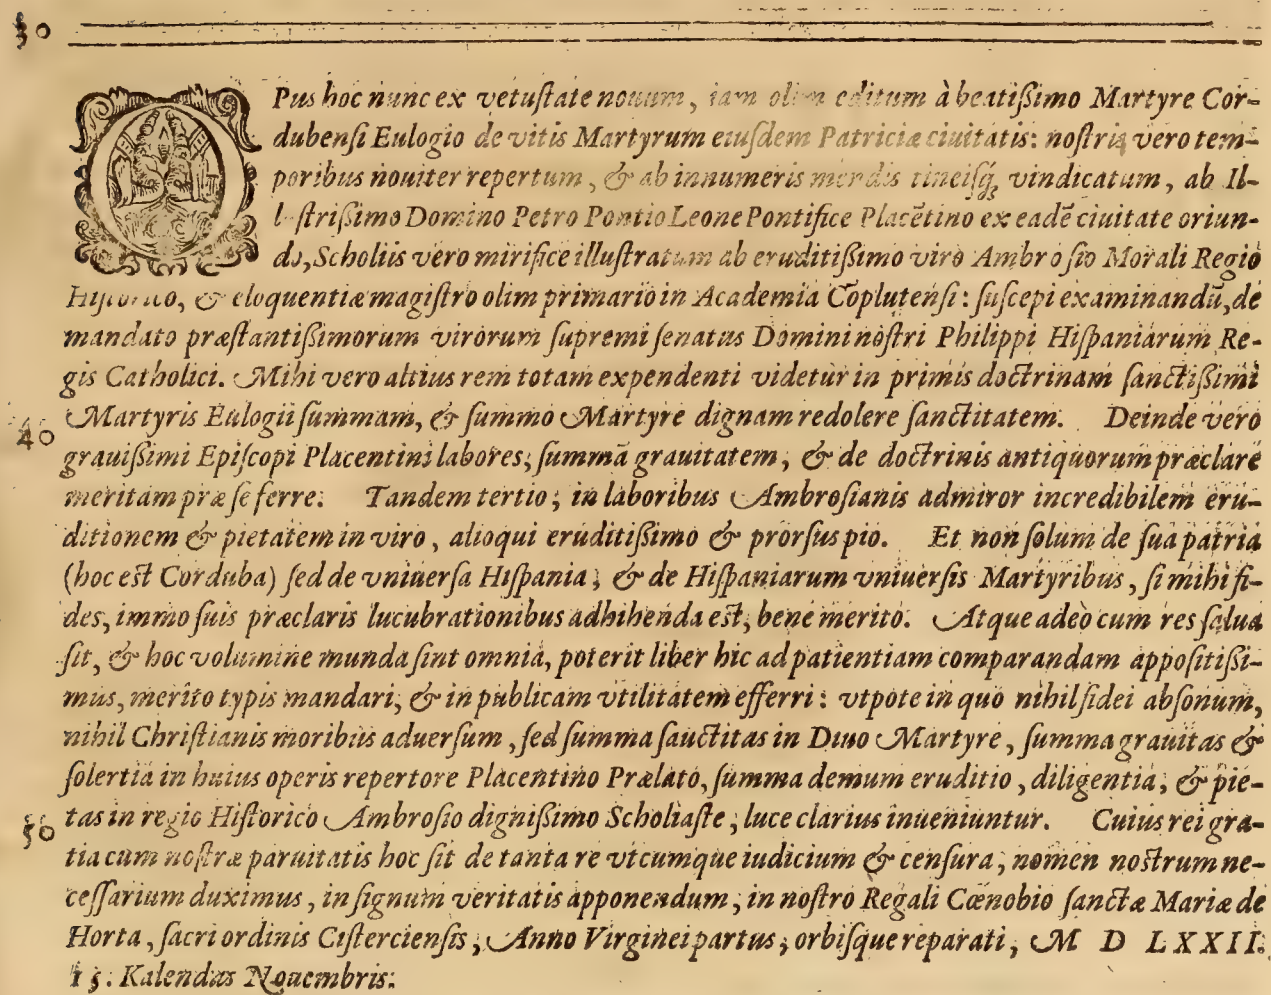 30
OPus hoc nunc ex vetustate nouum, iam olim editum à beatißimo Martyre Cor-
dubensi Eulogio de vitis Martyrum eiusdem Patriciæ ciuitatis: nostris vero tem-
poribus nouiter repertum, & ab innumeris mendis tineisq́ vindicatum, ab Il-
lustrißimo Domino Petro Pontio Leone Pontifice Placētino ex eadē ciuitate oriun-
do, Scholiis vero mirifice illustratum ab eruditißimo viro Ambrosio Morali Regio
Historico, & eloquentiæ magistro olim primario in Academia Cōplutensi: suscepi examinandū, de
mandato præstantißimorum virorum supremi senatus Domini nostri Philippi Hispaniarum Re-
gis Catholici. Mihi vero altius rem totam expendenti videtur in primis doctrinam sanctißimi
40 Martyris Eulogii summam, & summo Martyre dignam redolere sanctitatem. Deinde vero
grauißimi Episcopi Placentini labores, summā grauitatem, & de doctrinis antiquorum præclare
meritam præ se ferre. Tandem tertio, in laboribus Ambrosianis admiror incredibilem eru-
ditionem & pietatem in viro, alioqui eruditißimo & prorsus pio. Et non solum de sua patria
(hoc est Corduba) sed de vniuersa Hispania, & de Hispaniarum vniuersis Martyribus, si mihi fi-
des, immo suis præclaris lucubrationibus adhihenda est, bene merito. Atque adeò cum res salua
sit, & hoc volumine munda sint omnia, poterit liber hic ad patientiam comparandam appositißi-
mus, merito typis mandari, & in publicam vtilitatem efferri: vtpote in quo nihil fidei absonum,
nihil Christianis moribus aduersum, sed summa sauctitas in Diuo Martyre, summa grauitas &
solertia in huius operis repertore Placentino Prælato, summa demum eruditio, diligentia, & pie-
50 tas in regio Historico Ambrosio dignißimo Scholiaste, luce clarius inueniuntur. Cuius rei gra-
tia cum nostræ paruitatis hoc sit de tanta re vtcumque iudicium & censura, nomen nostrum ne-
cessarium duximus, in signum veritatis apponendum, in nostro Regali Cœnobio sanctæ Mariæ de
Horta, sacri ordinis Cisterciensis, Anno Virginei partus, orbisque reparati, M D LXXII.
15. Kalendas Nouembris.